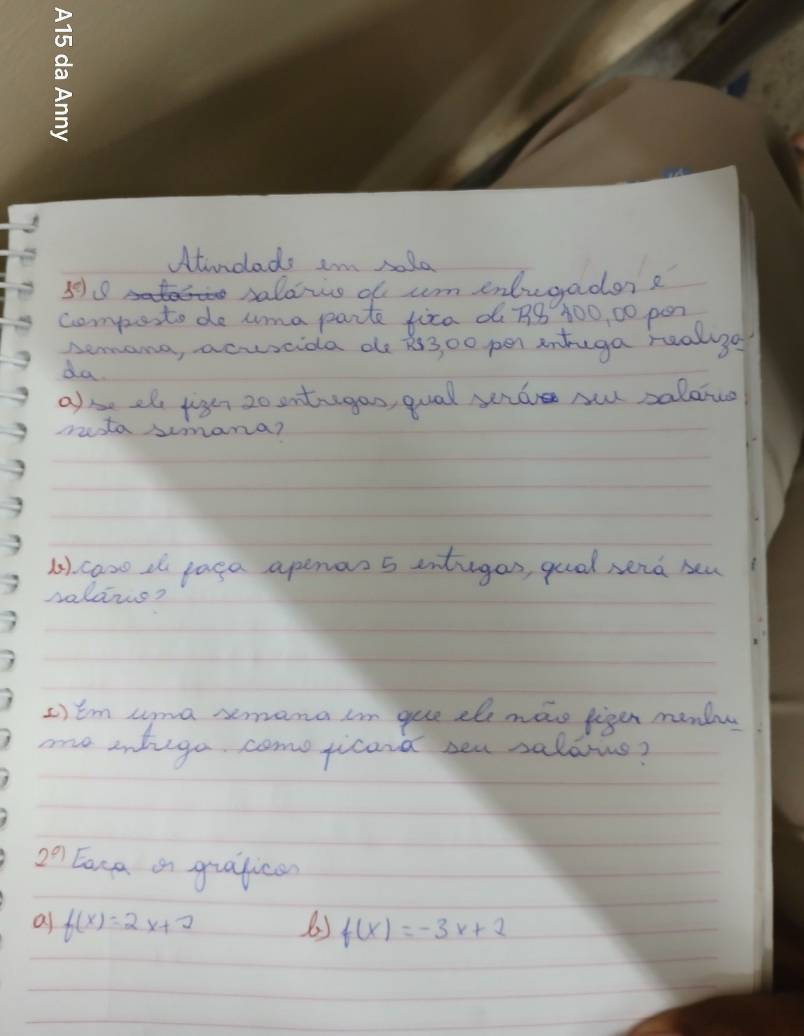 A15 da Anny
Atividade em sala
1º) O salário de um entregador é
composto de uma parte fixa de R$ 400,00 por
semana, acrescida de R$3,00 por entrega realiza
da.
a) se ele fizer 20 entregas, qual será seu salário
nesta semana?
b) caso ele faça apenas 5 entregas, qual será seu
salário?
c) Em uma semana em que ele não fizer nenhu
ma entrega. como ficará seu salário?
2º) Faça os gráficos
a) f(x)=2x+
b) f(x)=-3x+2